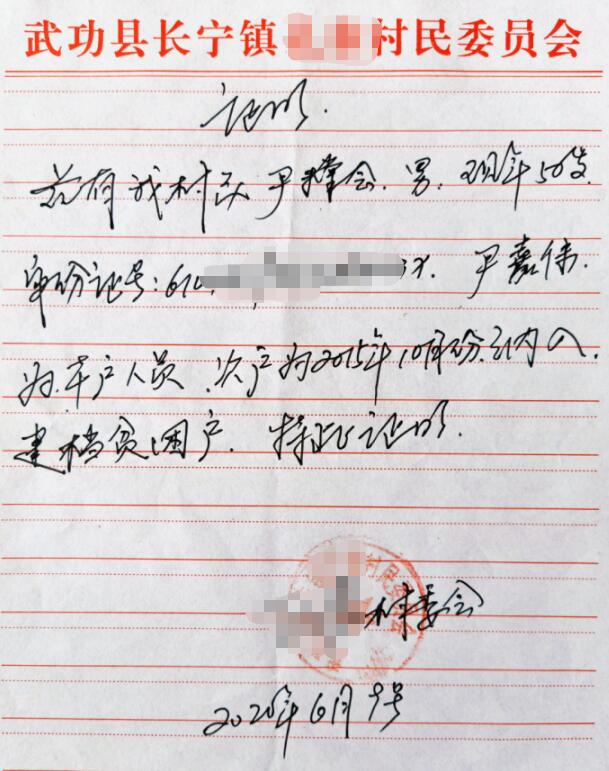 武功县长宁镇 村民委员会
证明
兹有我村民尹撑会.男.现年50岁.
身份证号:610 3X. 尹嘉伟.
为本户人员.次户为2015年10月份已纳入.
建档贫困户.特此证明.
村委会
2020年6月9号